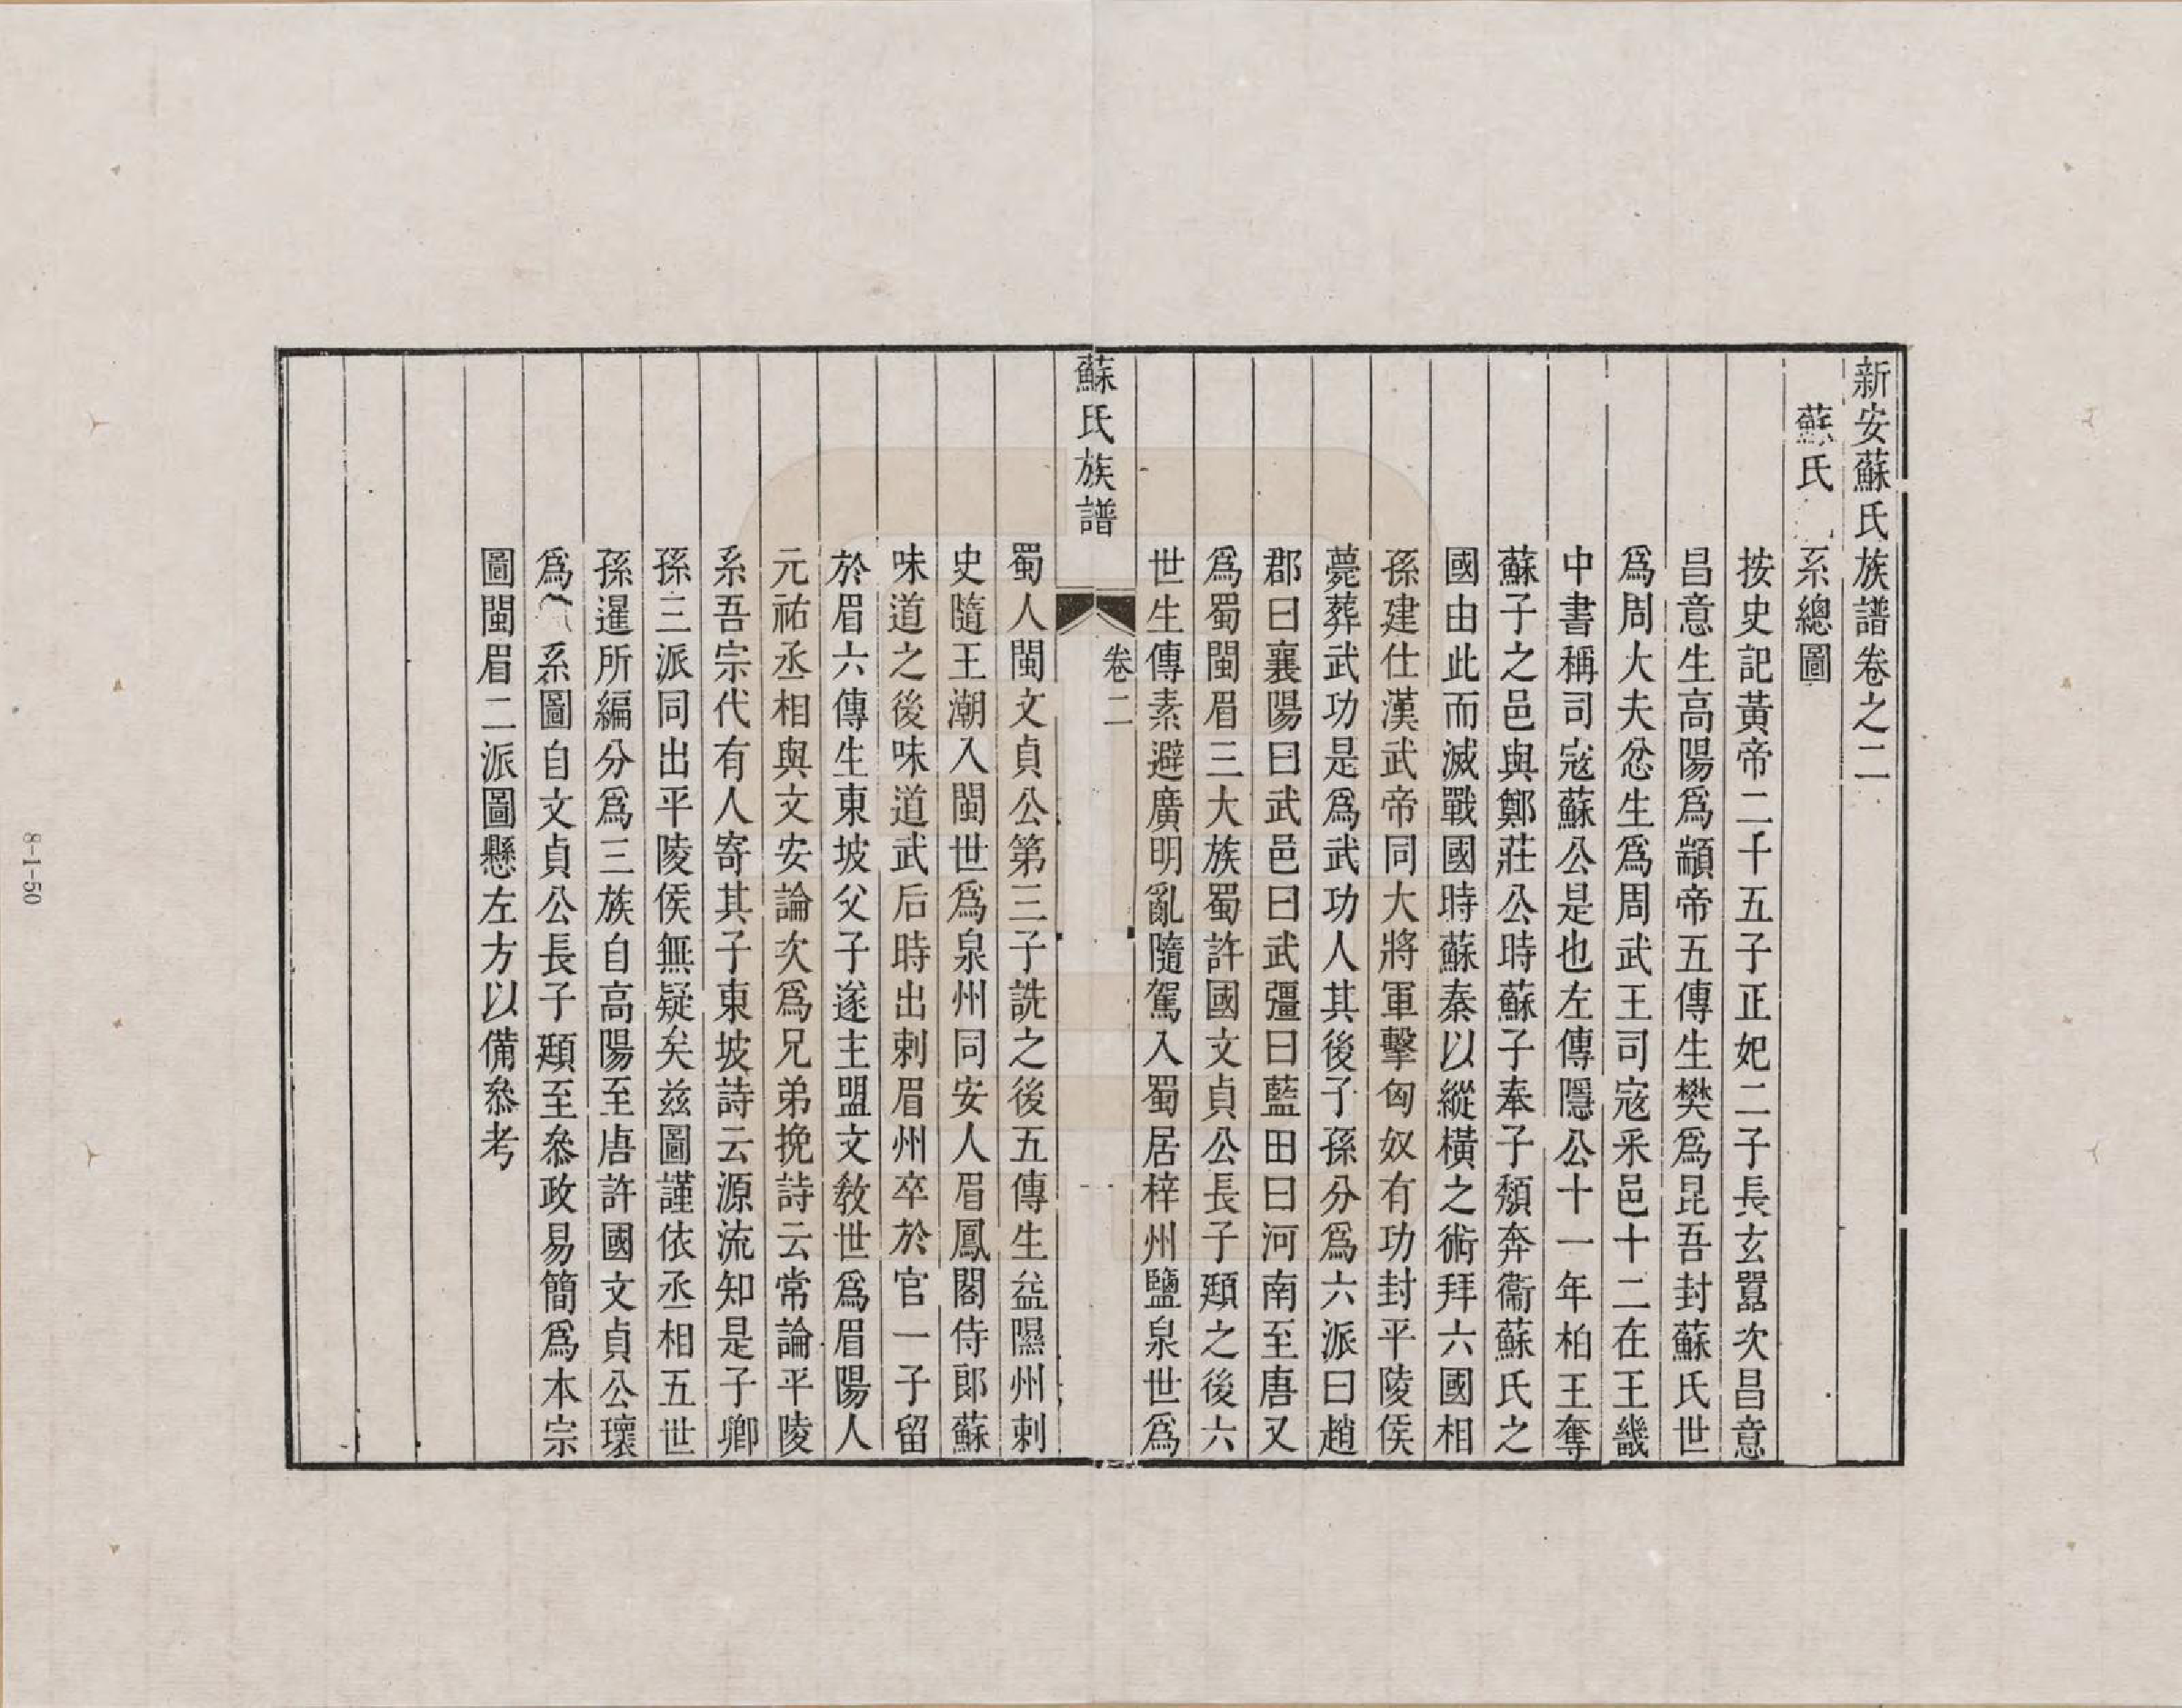 新安蘇氏族譜卷之二
蘇氏系總圖
按史記黃帝二千五子正妃二子長玄囂次昌意
昌意生高陽爲顓帝五傳生樊爲昆吾封蘇氏世
爲周大夫忿生爲周武王司寇采邑十二在王畿
中書稱司寇蘇公是也左傳隱公十一年柏王奪
蘇子之邑與鄭莊公時蘇子奉子頹奔衞蘇氏之
國由此而滅戰國時蘇秦以縱橫之術拜六國相
孫建仕漢武帝同大將軍擊匈奴有功封平陵侯
薨葬武功是爲武功人其後子孫分爲六派曰趙
郡曰襄陽曰武邑曰武彊曰藍田曰河南至唐又
爲蜀閩眉三大族蜀許國文貞公長子頲之後六
世生傳素避廣明亂隨駕入蜀居梓州鹽泉世爲
蘇氏族譜
卷二
蜀人閩文貞公第三子詵之後五傳生益隰州刺
史隨王潮入閩世爲泉州同安人眉鳳閣侍郎蘇
味道之後味道武后時出刺眉州卒於官一子留
於眉六傳生東坡父子遂主盟文敎世爲眉陽人
元祐丞相與文安論次爲兄弟挽詩云常論平陵
系吾宗代有人寄其子東坡詩云源流知是子卿
孫三派同出平陵侯無疑矣茲圖謹依丞相五世
孫暹所編分爲三族自高陽至唐許國文貞公瓌
爲系圖自文貞公長子頲至叅政易簡爲本宗
圖閩眉二派圖懸左方以備叅考
8-1-50